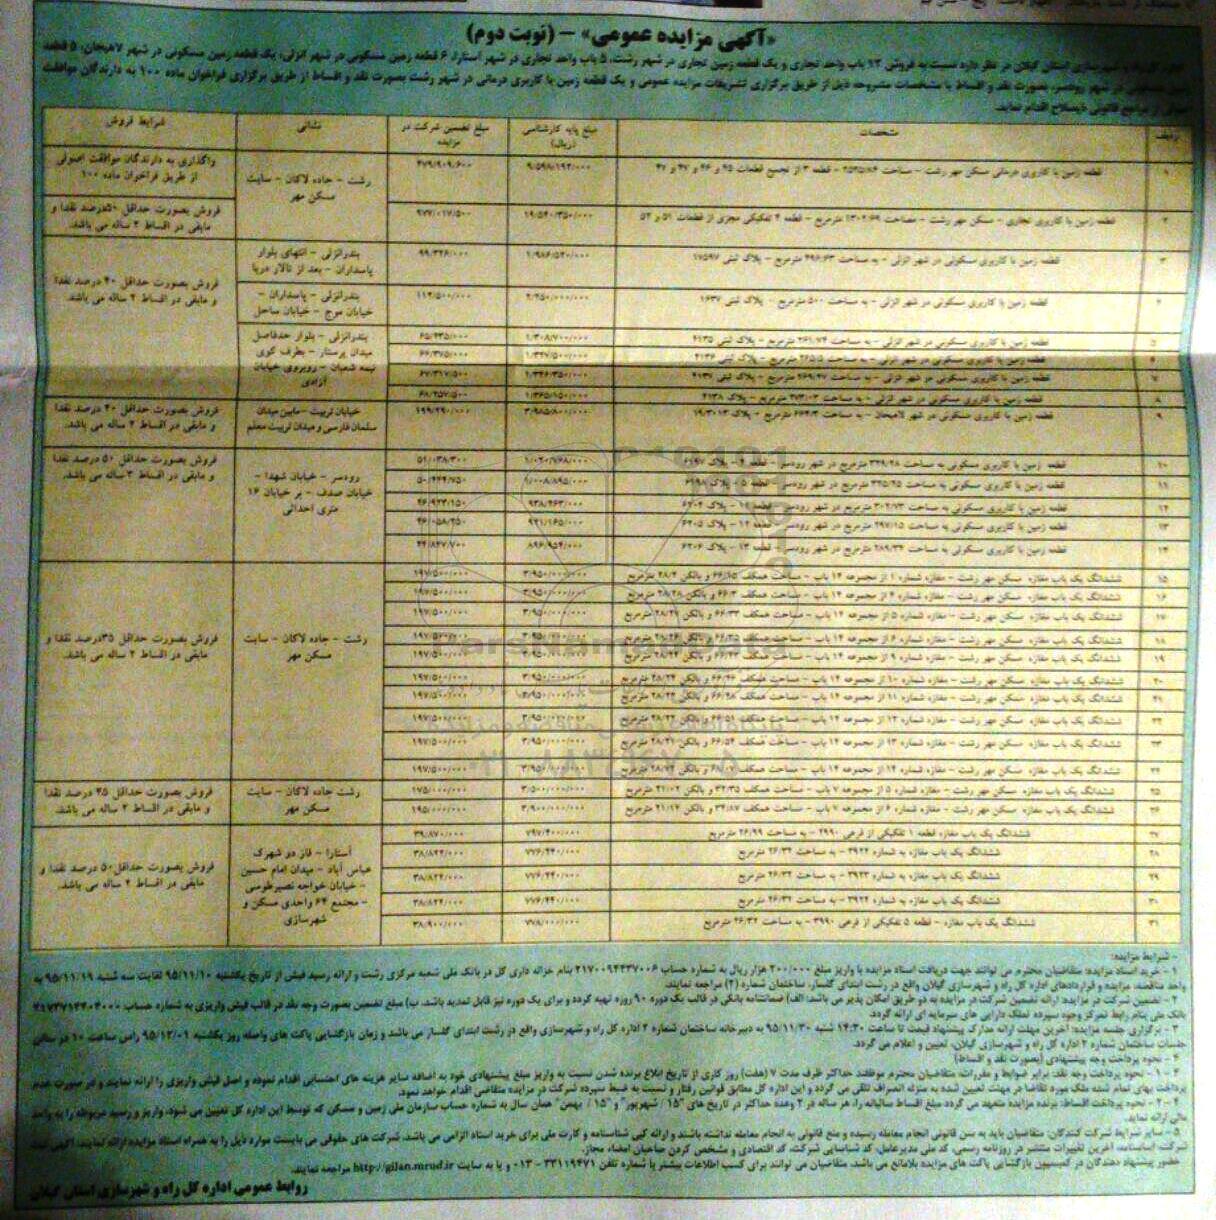 «آگهی مزایده عمومی» – (نوبت دوم)
شهرسازی استان گیلان در نظر دارد نسبت به فروش ۱۲ باب واحد تجاری و یک قطعه زمین تجاری در شهر رشت، ۵ باب واحد تجاری در شهر آستارا، ۶ قطعه زمین مسکونی در شهر انزلی، یک قطعه زمین مسکونی در شهر لاهیجان، ۵ قطعه
در شهر رودسر، بصورت نقد و اقساط با مشخصات مشروحه ذیل از طریق برگزاری تشریفات مزایده عمومی و یک قطعه زمین با کاربری درمانی در شهر رشت بصورت نقد و اقساط از طریق برگزاری فراخوان ماده ۱۰۰ به دارندگان موافقت
مراجع قانونی ذیصلاح اقدام نماید.
ردیف مشخصات مبلغ پایه کارشناسی (ریال) مبلغ تضمین شرکت در مزایده نشانی شرایط فروش
۱ قطعه زمین با کاربری درمانی مسکن مهر رشت – مساحت – قطعه ۳ از تجمیع قطعات ۴۵ و ۴۶ و ۴۷ و ۹/۵۹۸/۱۹۲/۰۰۰ ۴۷۹/۹۰۹/۶۰۰
رشت – جاده لاکان – سایت مسکن مهر
واگذاری به دارندگان موافقت اصولی از طریق فراخوان ماده ۱۰۰
۲ قطعه زمین با کاربری تجاری – مسکن مهر رشت – مساحت ۱۳۰۲/۶۹ مترمربع – قطعه ۴ تفکیکی مجزی از قطعات ۵۱ و ۵۲ ۱۹/۵۴۰/۳۵۰/۰۰۰ ۹۷۷/۰۱۷/۵۰۰
فروش بصورت حداقل ۵۰درصد نقدا و مابقی در اقساط ۲ ساله می باشد.
۳ قطعه زمین با کاربری مسکونی در شهر انزلی – به مساحت ۴۹۶/۶۳ مترمربع – پلاک ثبتی ۱۷۵۹۷ ۱/۹۸۶/۵۲۰/۰۰۰ ۹۹/۳۲۶/۰۰۰
بندرانزلی – انتهای بلوار پاسداران – بعد از تالار دریا
فروش بصورت حداقل ۴۰ درصد نقدا و مابقی در اقساط ۲ ساله می باشد.
۴ قطعه زمین با کاربری مسکونی در شهر انزلی – به مساحت ۵۰۰ مترمربع – پلاک ثبتی ۱۶۳۷ ۲/۲۵۰/۰۰۰/۰۰۰ ۱۱۲/۵۰۰/۰۰۰
بندرانزلی – پاسداران – خیابان موج – خیابان ساحل
۵ قطعه زمین با کاربری مسکونی در شهر انزلی – به مساحت ۲۶۱/۷۴ مترمربع – پلاک ثبتی ۴۱۳۵ ۱/۳۰۸/۷۰۰/۰۰۰ ۶۵/۴۳۵/۰۰۰
بندرانزلی – بلوار حدفاصل میدان پرستار – بطرف کوی نیمه شعبان – روبروی خیابان آزادی
۶ قطعه زمین با کاربری مسکونی در شهر انزلی – به مساحت ۲۶۵/۵ مترمربع – پلاک ثبتی ۴۱۳۶ ۱/۳۲۷/۵۰۰/۰۰۰ ۶۶/۳۷۵/۰۰۰
۷ قطعه زمین با کاربری مسکونی در شهر انزلی – به مساحت ۲۶۹/۲۷ مترمربع – پلاک ثبتی ۴۱۳۷ ۱/۳۴۶/۳۵۰/۰۰۰ ۶۷/۳۱۷/۵۰۰
۸ قطعه زمین با کاربری مسکونی در شهر انزلی – به مساحت ۲۷۳/۰۳ مترمربع – پلاک ثبتی ۴۱۳۸ ۱/۳۶۵/۱۵۰/۰۰۰ ۶۸/۲۵۷/۵۰۰
۹ قطعه زمین با کاربری مسکونی در شهر لاهیجان – به مساحت ۶۶۴/۳ مترمربع – پلاک ۱۹/۳۰۱۳ ۳/۹۸۵/۸۰۰/۰۰۰ ۱۹۹/۲۹۰/۰۰۰
خیابان تربیت – مابین میدان سلمان فارسی و میدان تربیت معلم
فروش بصورت حداقل ۴۰ درصد نقدا و مابقی در اقساط ۲ ساله می باشد.
۱۰ قطعه زمین با کاربری مسکونی به مساحت ۳۲۹/۲۸ مترمربع در شهر رودسر – قطعه ۴ – پلاک ۶۱۹۷ ۱/۰۲۰/۷۶۸/۰۰۰ ۵۱/۰۳۸/۳۰۰
رودسر – خیابان شهدا – خیابان صدف – بر خیابان ۱۶ متری احداثی
فروش بصورت حداقل ۵۰ درصد نقدا و مابقی در اقساط ۲ ساله می باشد.
۱۱ قطعه زمین با کاربری مسکونی به مساحت ۳۲۵/۴۵ مترمربع در شهر رودسر – قطعه ۵ – پلاک ۶۱۹۸ ۱/۰۰۸/۸۹۵/۰۰۰ ۵۰/۴۴۴/۷۵۰
۱۲ قطعه زمین با کاربری مسکونی به مساحت ۳۰۲/۷۳ مترمربع در شهر رودسر – قطعه ۱۱ – پلاک ۶۲۰۴ ۹۳۸/۴۶۳/۰۰۰ ۴۶/۹۲۳/۱۵۰
۱۳ قطعه زمین با کاربری مسکونی به مساحت ۲۹۷/۱۵ مترمربع در شهر رودسر – قطعه ۱۲ – پلاک ۶۲۰۵ ۹۲۱/۱۶۵/۰۰۰ ۴۶/۰۵۸/۲۵۰
۱۴ قطعه زمین با کاربری مسکونی به مساحت ۲۸۹/۳۴ مترمربع در شهر رودسر – قطعه ۱۳ – پلاک ۶۲۰۶ ۸۹۶/۹۵۴/۰۰۰ ۴۴/۸۴۷/۷۰۰
۱۵ ششدانگ یک باب مغازه مسکن مهر رشت – مغازه شماره ۱ از مجموعه ۱۴ باب – مساحت همکف ۶۶/۱۵ و بالکن ۲۸/۲ مترمربع ۳/۹۵۰/۰۰۰/۰۰۰ ۱۹۷/۵۰۰/۰۰۰
رشت – جاده لاکان – سایت مسکن مهر
فروش بصورت حداقل ۳۵درصد نقدا و مابقی در اقساط ۲ ساله می باشد.
۱۶ ششدانگ یک باب مغازه مسکن مهر رشت – مغازه شماره ۴ از مجموعه ۱۴ باب – مساحت همکف ۶۶/۳ و بالکن ۲۸/۲۸ مترمربع ۳/۹۵۰/۰۰۰/۰۰۰ ۱۹۷/۵۰۰/۰۰۰
۱۷ ششدانگ یک باب مغازه مسکن مهر رشت – مغازه شماره ۵ از مجموعه ۱۴ باب – مساحت همکف ۶۶/۳۳ و بالکن ۲۸/۲۷ مترمربع ۳/۹۵۰/۰۰۰/۰۰۰ ۱۹۷/۵۰۰/۰۰۰
۱۸ ششدانگ یک باب مغازه مسکن مهر رشت – مغازه شماره ۶ از مجموعه ۱۴ باب – مساحت همکف ۶۶/۳۵ و بالکن ۲۸/۲۶ مترمربع ۳/۹۵۰/۰۰۰/۰۰۰ ۱۹۷/۵۰۰/۰۰۰
۱۹ ششدانگ یک باب مغازه مسکن مهر رشت – مغازه شماره ۹ از مجموعه ۱۴ باب – مساحت همکف و بالکن مترمربع ۳/۹۵۰/۰۰۰/۰۰۰ ۱۹۷/۵۰۰/۰۰۰
۲۰ ششدانگ یک باب مغازه مسکن مهر رشت – مغازه شماره ۱۰ از مجموعه ۱۴ باب – مساحت همکف ۶۶/۴۶ و بالکن ۲۸/۲۴ مترمربع ۳/۹۵۰/۰۰۰/۰۰۰ ۱۹۷/۵۰۰/۰۰۰
۲۱ ششدانگ یک باب مغازه مسکن مهر رشت – مغازه شماره ۱۱ از مجموعه ۱۴ باب – مساحت همکف ۶۶/۴۸ و بالکن ۲۸/۲۳ مترمربع ۳/۹۵۰/۰۰۰/۰۰۰ ۱۹۷/۵۰۰/۰۰۰
۲۲ ششدانگ یک باب مغازه مسکن مهر رشت – مغازه شماره ۱۲ از مجموعه ۱۴ باب – مساحت همکف ۶۶/۵۱ و بالکن ۲۸/۲۲ مترمربع ۳/۹۵۰/۰۰۰/۰۰۰ ۱۹۷/۵۰۰/۰۰۰
۲۳ ششدانگ یک باب مغازه مسکن مهر رشت – مغازه شماره ۱۳ از مجموعه ۱۴ باب – مساحت همکف ۶۶/۵۴ و بالکن ۲۸/۲۱ مترمربع ۳/۹۵۰/۰۰۰/۰۰۰ ۱۹۷/۵۰۰/۰۰۰
۲۴ ششدانگ یک باب مغازه مسکن مهر رشت – مغازه شماره ۱۴ از مجموعه ۱۴ باب – مساحت همکف و بالکن ۲۸/۷۲ مترمربع ۳/۹۵۰/۰۰۰/۰۰۰ ۱۹۷/۵۰۰/۰۰۰
۲۵ ششدانگ یک باب مغازه مسکن مهر رشت – مغازه شماره ۵ از مجموعه ۷ باب – مساحت همکف ۳۴/۳۵ و بالکن ۲۱/۰۲ مترمربع ۳/۵۰۰/۰۰۰/۰۰۰ ۱۷۵/۰۰۰/۰۰۰
رشت جاده لاکان – سایت مسکن مهر
فروش بصورت حداقل ۴۵ درصد نقدا و مابقی در اقساط ۲ ساله می باشد.
۲۶ ششدانگ یک باب مغازه مسکن مهر رشت – مغازه شماره ۶ از مجموعه ۷ باب – مساحت همکف ۳۴/۸۷ و بالکن ۲۱/۱۴ مترمربع ۳/۹۰۰/۰۰۰/۰۰۰ ۱۹۵/۰۰۰/۰۰۰
۲۷ ششدانگ یک باب مغازه قطعه ۱ تفکیکی از فرعی ۳۹۹۰ – به مساحت ۲۶/۹۹ مترمربع ۷۹۷/۴۰۰/۰۰۰ ۳۹/۸۷۰/۰۰۰
آستارا – فاز دو شهرک عباس آباد – میدان امام حسین – خیابان خواجه نصیرطوسی – مجتمع ۶۴ واحدی مسکن و شهرسازی
فروش بصورت حداقل۵۰ درصد نقدا و مابقی در اقساط ۲ ساله می باشد.
۲۸ ششدانگ یک باب مغازه به شماره ۳۹۲۲ – به مساحت ۲۶/۳۲ مترمربع ۷۷۶/۴۴۰/۰۰۰ ۳۸/۸۲۲/۰۰۰
۲۹ ششدانگ یک باب مغازه به شماره ۳۹۲۳ – به مساحت ۲۶/۳۲ مترمربع ۷۷۶/۴۴۰/۰۰۰ ۳۸/۸۲۲/۰۰۰
۳۰ ششدانگ یک باب مغازه به شماره ۳۹۲۴ – به مساحت ۲۶/۳۲ مترمربع ۷۷۶/۴۴۰/۰۰۰ ۳۸/۸۲۲/۰۰۰
۳۱ ششدانگ یک باب مغازه – قطعه ۵ تفکیکی از فرعی ۳۹۹۰ – به مساحت ۲۶/۳۲ مترمربع ۷۷۸/۰۰۰/۰۰۰ ۳۸/۹۰۰/۰۰۰
– شرایط مزایده:
۱ – خرید اسناد مزایده: متقاضیان محترم می توانند جهت دریافت اسناد مزایده با واریز مبلغ ۲۰۰/۰۰۰ هزار ریال به شماره حساب ۲۱۷۰۰۹۴۴۳۷۰۰۶ بنام خزانه داری کل در بانک ملی شعبه مرکزی رشت و ارائه رسید فیش از تاریخ یکشنبه ۹۵/۱۱/۱۰ لغایت سه شنبه ۹۵/۱۱/۱۹ به
واحد مناقصه، مزایده و قراردادهای اداره کل راه و شهرسازی گیلان واقع در رشت ابتدای گلسار، ساختمان شماره (۲) مراجعه نمایند.
۲ – تضمین شرکت در مزایده: ارائه تضمین شرکت در مزایده به دو طریق امکان پذیر می باشد: الف) ضمانتنامه بانکی در قالب یک دوره ۹۰ روزه تهیه گردد و برای یک دوره نیز قابل تمدید باشد. ب) مبلغ تضمین بصورت وجه نقد در قالب فیش واریزی به شماره حساب
بانک ملی بنام رابط تمرکز وجوه سپرده تملک دارایی های سرمایه ای ارائه گردد.
۳ – برگزاری جلسه مزایده: آخرین مهلت ارائه مدارک پیشنهاد قیمت تا ساعت ۱۴:۳۰ شنبه ۹۵/۱۱/۳۰ به دبیرخانه ساختمان شماره ۲ اداره کل راه و شهرسازی واقع در رشت ابتدای گلسار می باشد و زمان بازگشایی پاکت های واصله روز یکشنبه ۹۵/۱۲/۰۱ راس ساعت ۱۰ در سالن
جلسات ساختمان شماره ۲ اداره کل راه و شهرسازی گیلان، تعیین و اعلام می گردد.
۴ – نحوه پرداخت وجه پیشنهادی (بصورت نقد و اقساط)
۴ – ۱ – نحوه پرداخت وجه نقد: برابر ضوابط و مقررات، متقاضیان محترم موظفند حداکثر ظرف مدت ۷ (هفت) روز کاری از تاریخ ابلاغ برنده شدن نسبت به واریز مبلغ پیشنهادی خود به اضافه سایر هزینه های احتسابی اقدام نموده و اصل فیش واریزی را ارائه نمایند و در صورت عدم
پرداخت بهای تمام شده ملک مورد تقاضا در مهلت تعیین شده به منزله انصراف تلقی می گردد و این اداره کل مطابق قوانین رفتار و نسبت به ضبط سپرده شرکت در مزایده متقاضی اقدام خواهد نمود.
۴ – ۲ – نحوه پرداخت اقساط: برنده مزایده متعهد می گردد مبلغ اقساط سالیانه را، هر ساله در ۲ وعده حداکثر در تاریخ های "۱۵ / شهریور" و "۱۵ / بهمن" همان سال به شماره حساب سازمان ملی زمین و مسکن که توسط این اداره کل تعیین می شود، واریز و رسید مربوطه را به واحد
مالی ارائه نماید.
۵ – سایر شرایط شرکت کنندگان: متقاضیان باید به سن قانونی انجام معامله رسیده و منع قانونی به انجام معامله نداشته باشند و ارائه کپی شناسنامه و کارت ملی برای خرید اسناد الزامی می باشد. شرکت های حقوقی می بایست موارد ذیل را به همراه اسناد مزایده ارائه نمایند: آگهی ثبت
شرکت، اساسنامه، آخرین تغییرات منتشر در روزنامه رسمی، کد ملی مدیرعامل، کد شناسایی شرکت، کد اقتصادی و مشخص کردن صاحبان امضاء مجاز.
حضور پیشنهاد دهندگان در کمیسیون بازگشایی پاکت های مزایده بلامانع می باشد. متقاضیان می توانند برای کسب اطلاعات بیشتر با شماره تلفن ۳۳۱۱۹۴۷۱ – ۰۱۳ و یا به سایت http://gilan.mrud.ir مراجعه نمایند.
روابط عمومی اداره کل راه و شهرسازی استان گیلان